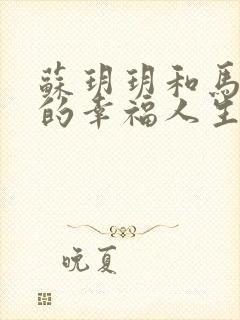 蘇玥玥和馬
的幸福人生
晚夏